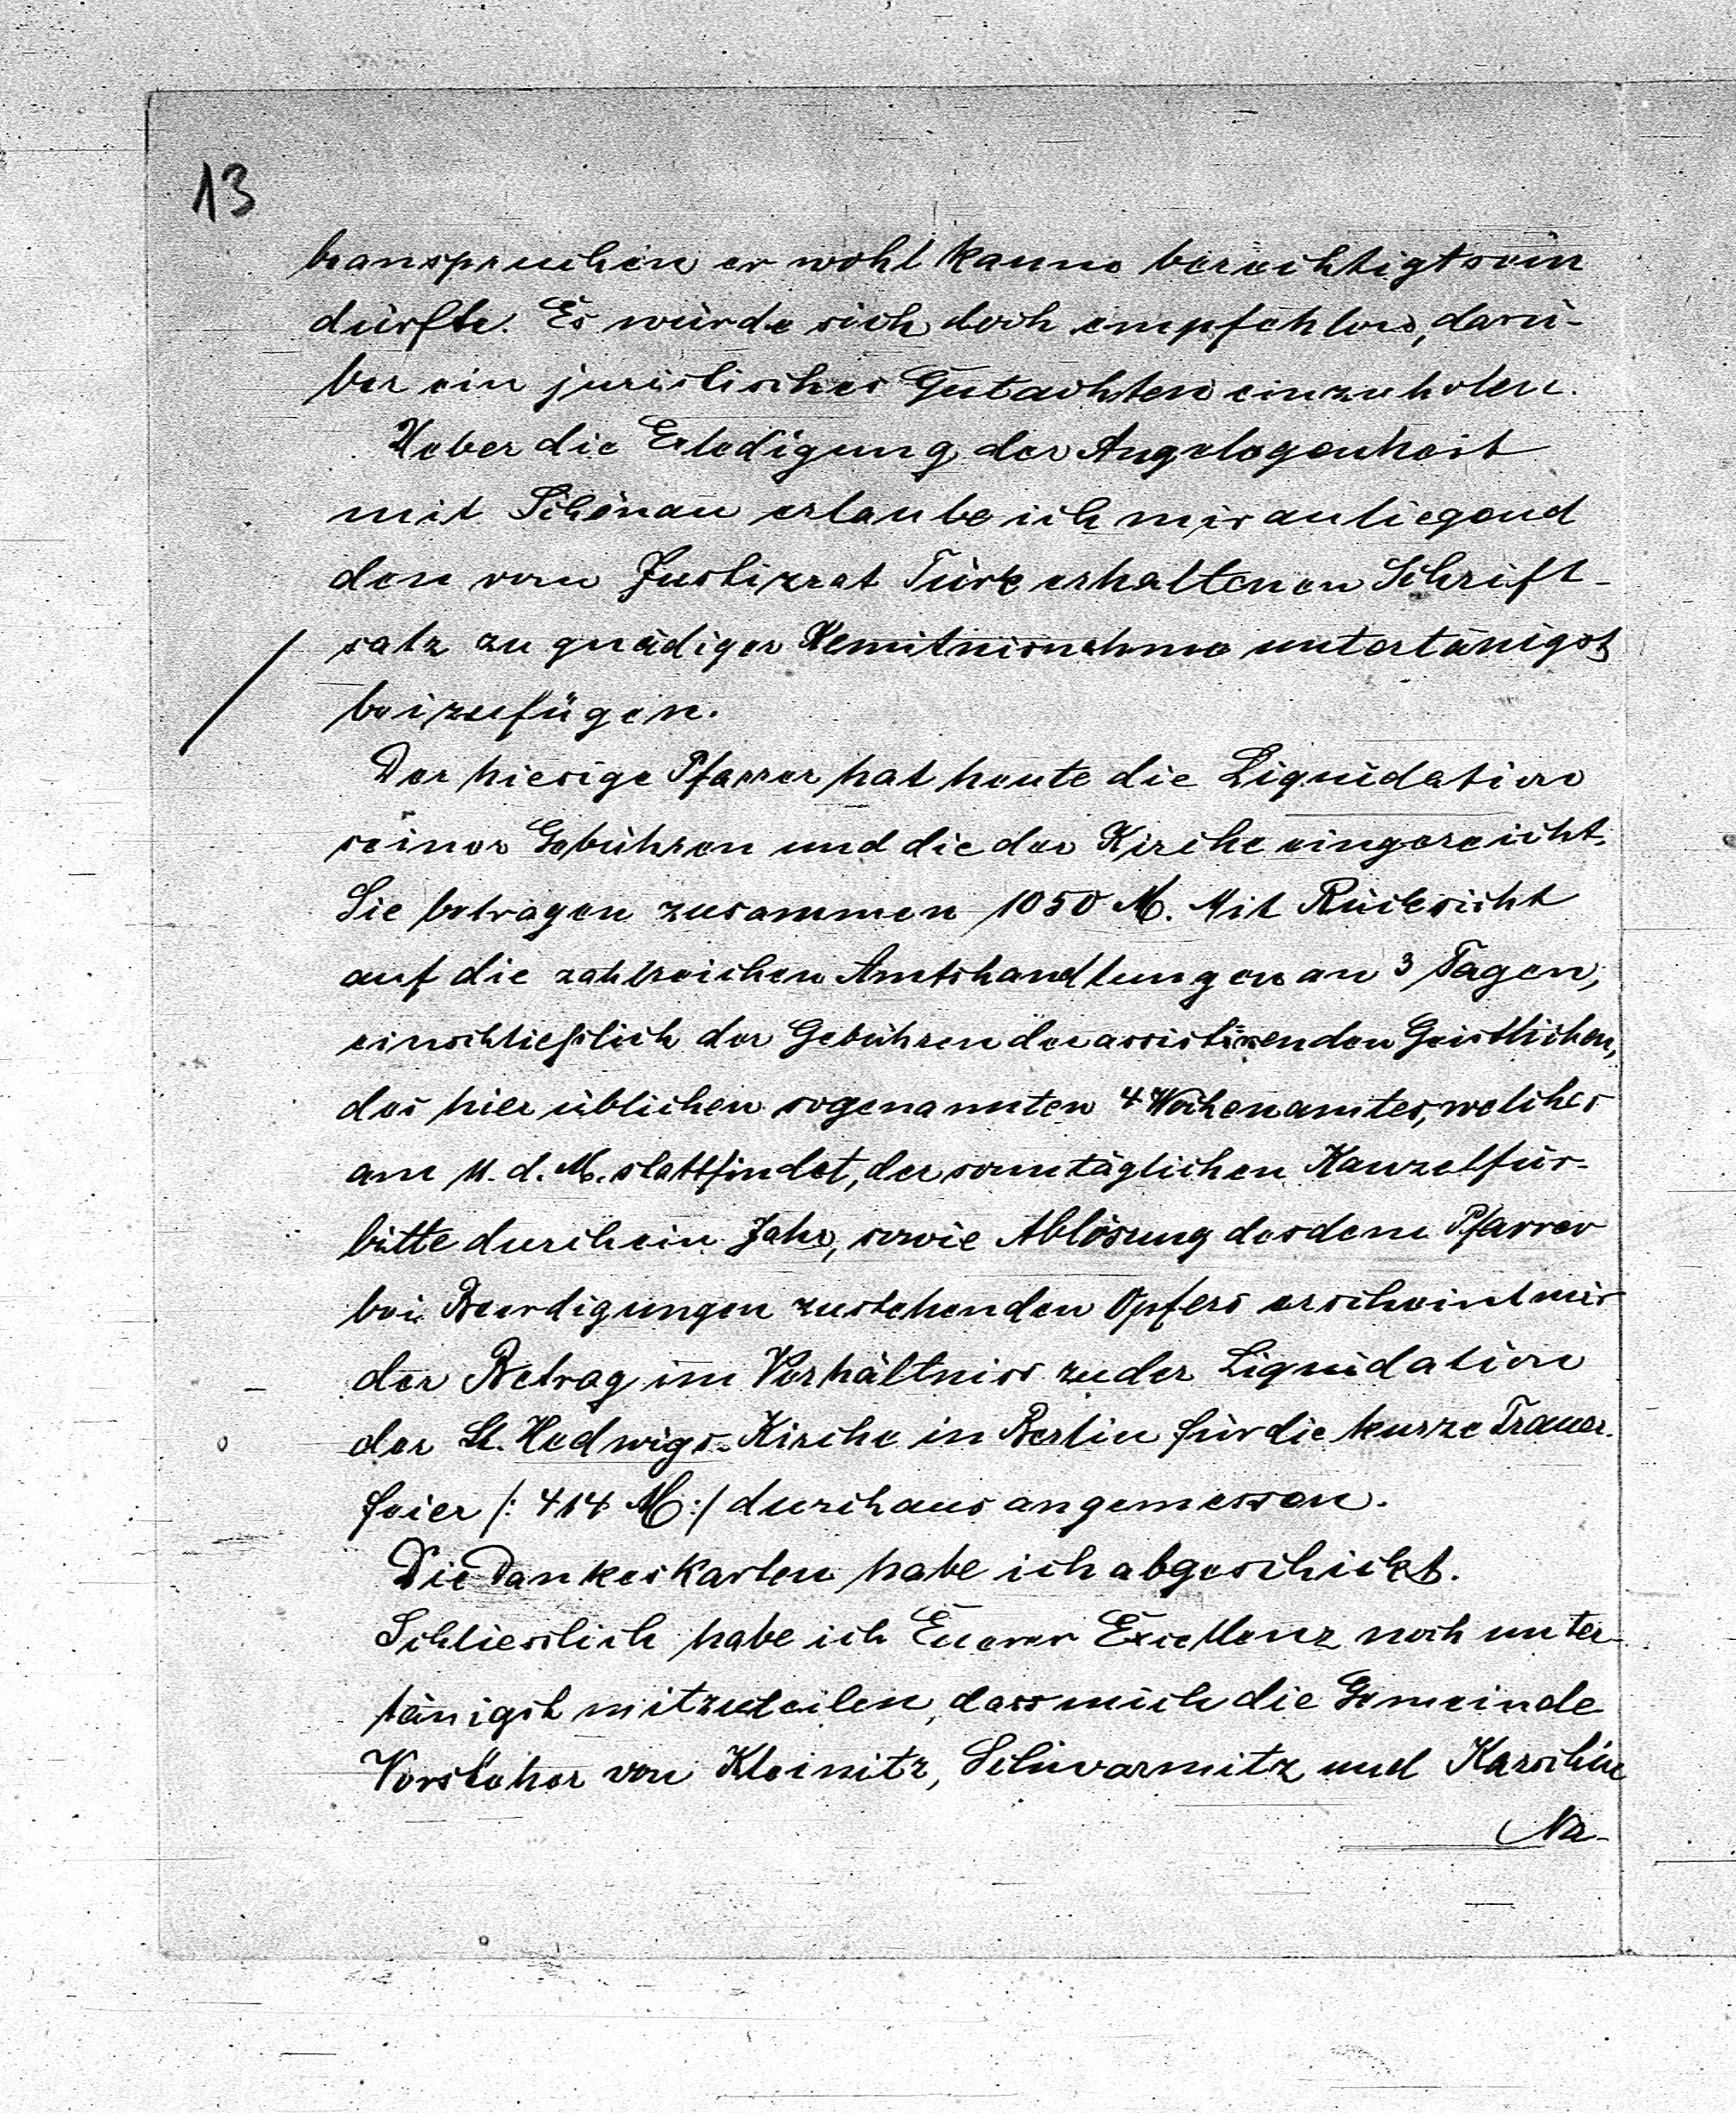 13
beanspruchen er wohl kaum berechtigt sein
dürfte. Es würde sich doch empfehlen, darü-
ber ein juristisches Gutachten einzuholen.
Ueber die Erledigung der Angelegenheit
mit Schönau erlaube ich mir anliegend
den vom Justizrat Türk erhaltenen Schrift-
satz zu gnädiger Kenntnisnahme untertänigst
beizufügen.
Der hiesige Pfarrer hat heute die Liquidation
seiner Gebühren und die der Kirche eingereicht.
Sie betragen zusammen 1050 M. Mit Rücksicht
auf die zahlreichen Amtshandlungen an 3 Tagen,
einschließlich der Gebühren der assistirenden Geistlichen,
des hier üblichen sogenannten 4 Wochenamtes, welches
am 11. d. M. stattfindet, der sonntäglichen Kanzelfür-
bitte durch ein Jahr, sowie Ablösung des dem Pfarrer
bei Beerdigungen zustehenden Opfers erscheint mir
der Betrag im Verhältniss zu der Liquidation
der St. Hedwigs-Kirche in Berlin für die kurze Trauer-
feier /: 414 M :/ durchaus angemessen.
Die Dankeskarten habe ich abgeschickt.
Schliesslich habe ich Euerer Excellenz noch unter-
tänigst mitzuteilen, dass mich die Gemeinde
Vorsteher von Kleinitz, Schwarmitz und Karschin
Na-